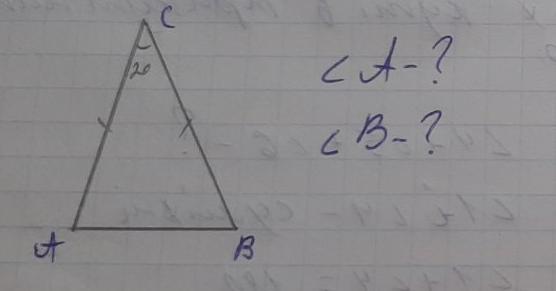 C
20
< A - ?
< B - ?
A
B